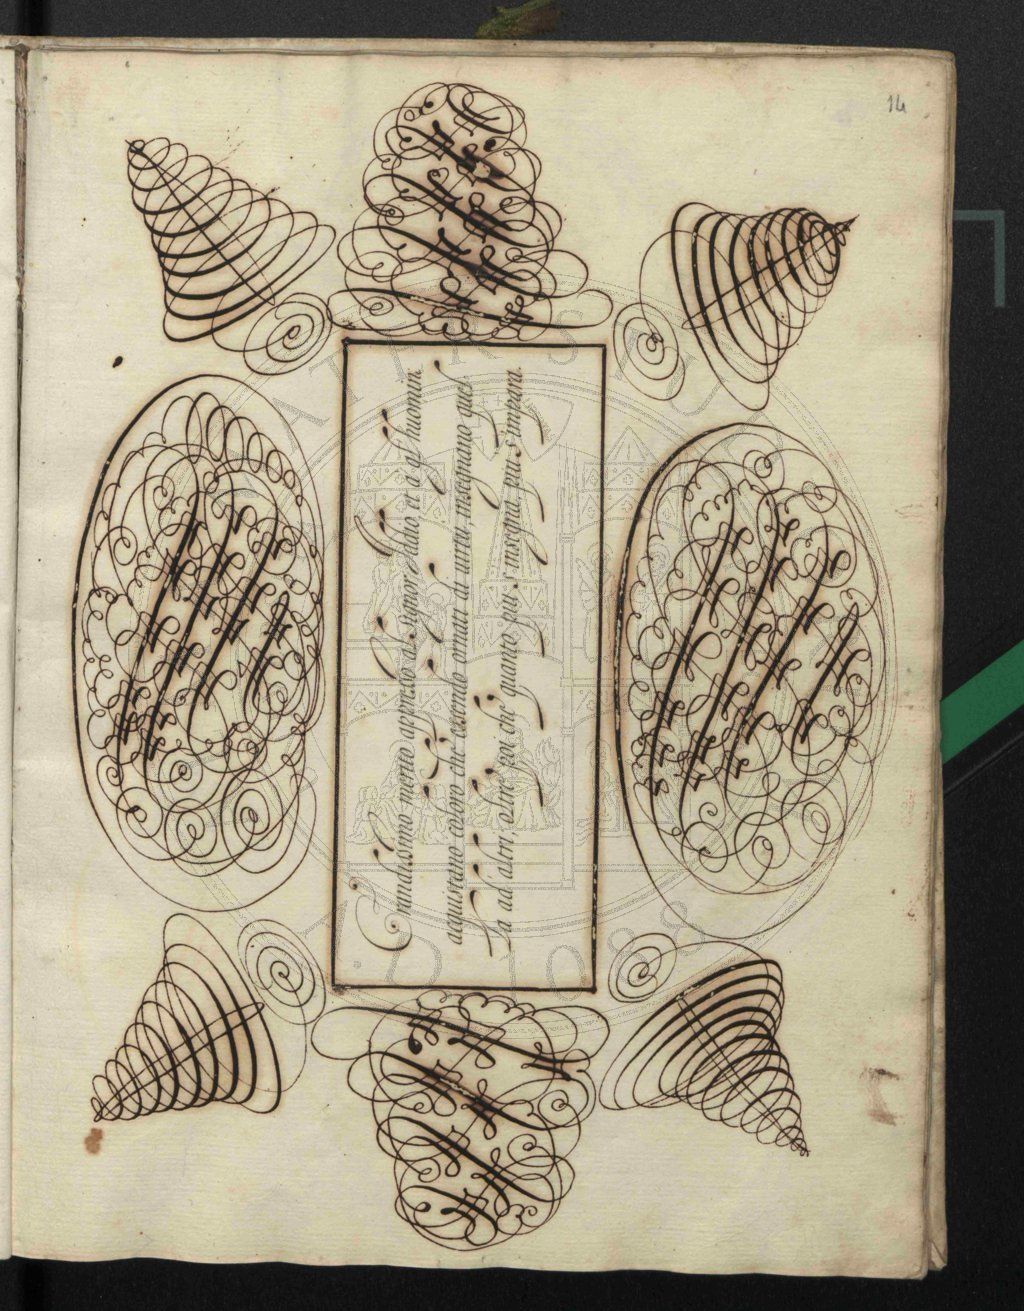 14
Grandissimo merito appresso al Signor Iddio et a gl' huomini
acquistano coloro che essendo ornati di virtù, insegnano quel=
la ad altri, oltre poi che quanto più s'insegna, più s'impara.